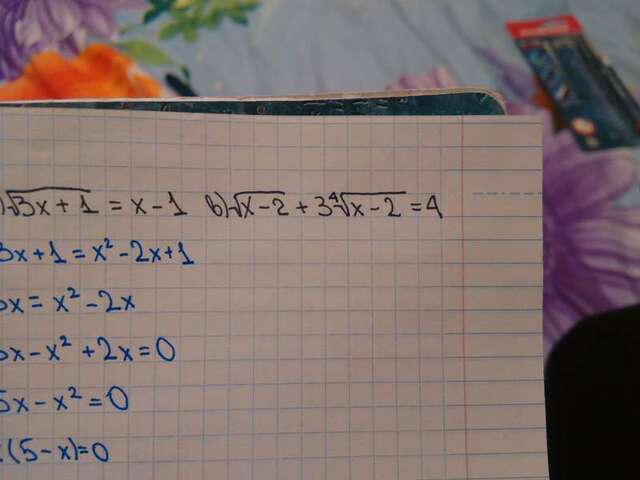 )√3x+1 = x-1 в)√x-2 + 3⁴√x-2 = 4
3x+1 = x²-2x+1
3x = x²-2x
3x - x² + 2x = 0
5x - x² = 0
(5-x)=0